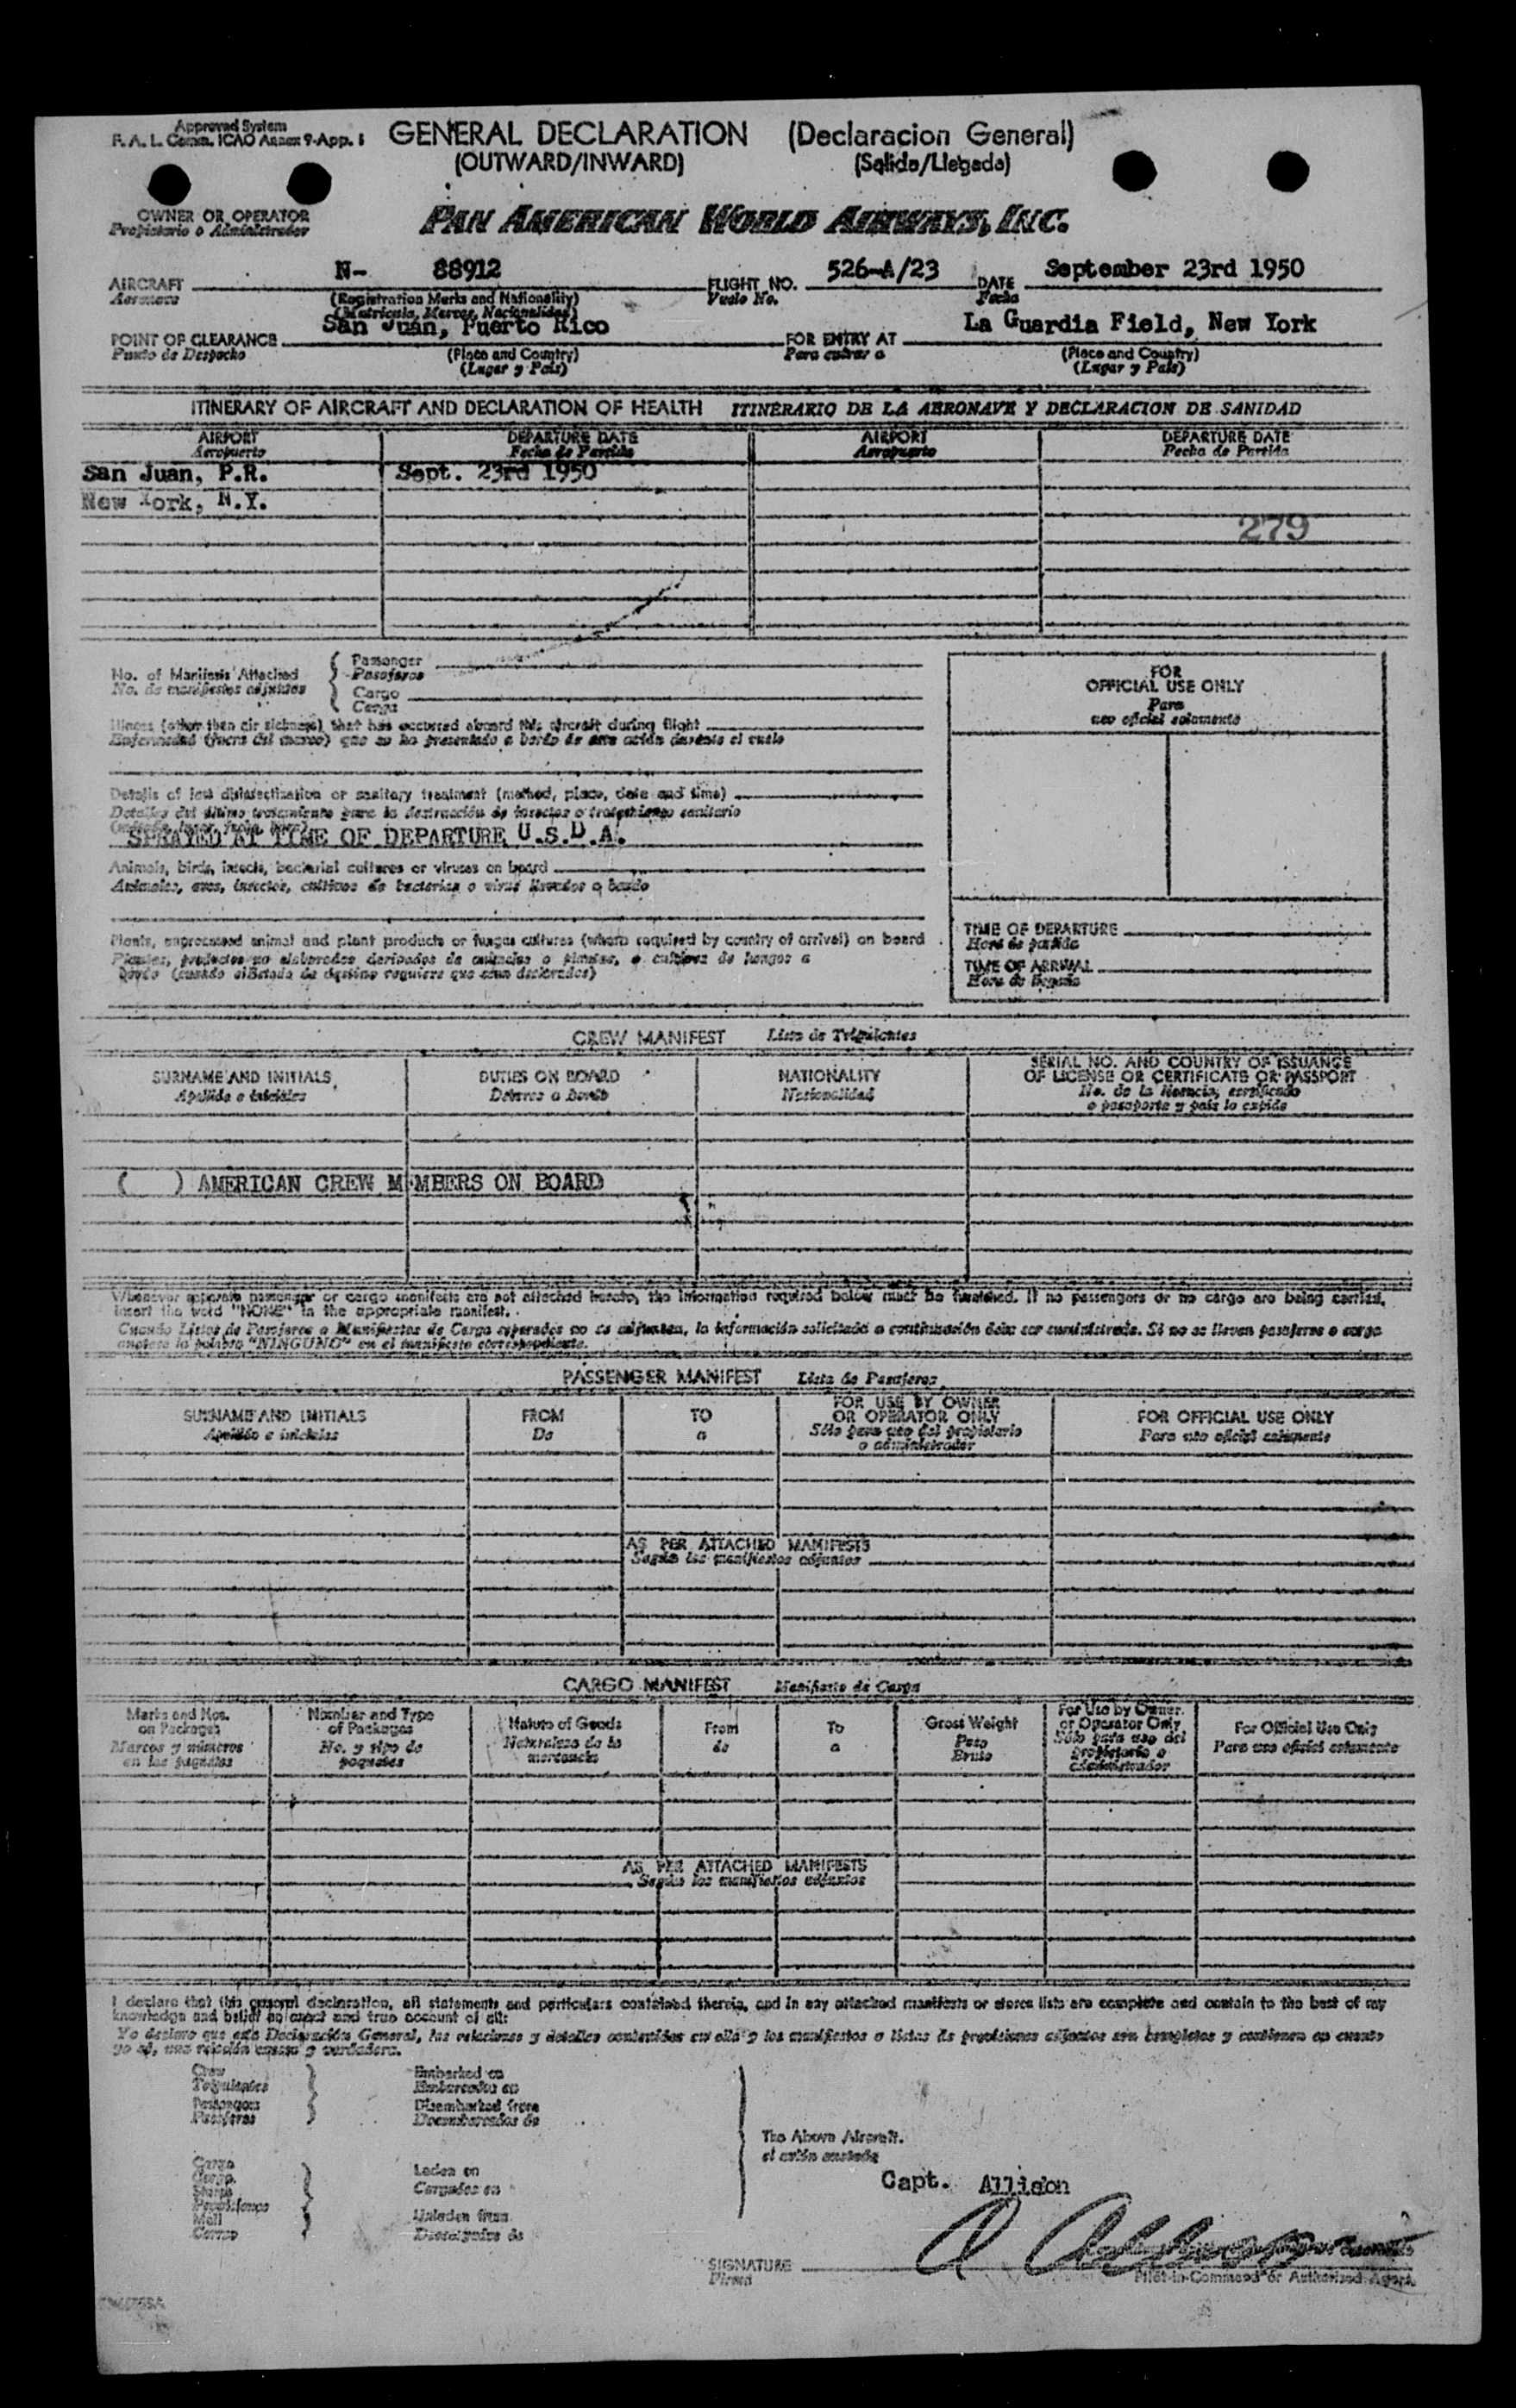 Approved System
F. A. L. Comm. ICAO Annex 9-App. 1
GENERAL DECLARATION (Declaracion General)
(OUTWARD/INWARD) (Salida/Llegada)
OWNER OR OPERATOR
Propietario o Administrador
PAN AMERICAN WORLD AIRWAYS, INC.
AIRCRAFT N- 88912 FLIGHT NO. 526-A/23 DATE September 23rd 1950
Aeronave (Registration Marks and Nationality) Vuelo No. Fecha
(Matricula, Marcas, Nacionalidad)
San Juan, Puerto Rico La Guardia Field, New York
POINT OF CLEARANCE FOR ENTRY AT
Punto de Despacho (Place and Country) Para entrar a (Place and Country)
(Lugar y País) (Lugar y País)
ITINERARY OF AIRCRAFT AND DECLARATION OF HEALTH ITINERARIO DE LA AERONAVE Y DECLARACION DE SANIDAD
AIRPORT DEPARTURE DATE AIRPORT DEPARTURE DATE
Aeropuerto Fecha de Partida Aeropuerto Fecha de Partida
San Juan, P.R. Sept. 23rd 1950
New York, N.Y.
279
No. of Manifests Attached Passenger
No. de manifiestos adjuntos Pasajeros
Cargo
Carga
FOR
OFFICIAL USE ONLY
Para
uso oficial solamente
Illness (other than air sickness) that has occurred aboard this aircraft during flight
Enfermedad (fuera del mareo) que se ha presentado a bordo de este avión durante el vuelo
Details of last disinsectization or sanitary treatment (method, place, date and time)
Detalles del último tratamiento para la destrucción de insectos o tratamiento sanitario
SPRAYED AT TIME OF DEPARTURE U.S.D.A.
Animals, birds, insects, bacterial cultures or viruses on board
Animales, aves, insectos, cultivos de bacterias o virus llevados a bordo
Plants, unprocessed animal and plant products or fungus cultures (where required by country of arrival) on board
Plantas, productos no elaborados derivados de animales o plantas, o cultivos de hongos a
bordo
TIME OF DEPARTURE
Hora de partida
TIME OF ARRIVAL
Hora de llegada
CREW MANIFEST Lista de Tripulantes
SURNAME AND INITIALS DUTIES ON BOARD NATIONALITY SERIAL NO. AND COUNTRY OF ISSUANCE
OF LICENSE OR CERTIFICATE OR PASSPORT
Apellido e iniciales Deberes a bordo Nacionalidad No. de la licencia, certificado
o pasaporte y país lo expide
( ) AMERICAN CREW MEMBERS ON BOARD
Whenever separate passenger or cargo manifests are not attached hereto, the information required below must be furnished. If no passengers or no cargo are being carried,
insert the word "NONE" in the appropriate manifest.
Cuando Listas de Pasajeros o Manifiestos de Carga separados no se adjuntan, la información solicitada a continuación debe ser suministrada. Si no se llevan pasajeros o carga
anótese la palabra "NINGUNO" en el manifiesto correspondiente.
PASSENGER MANIFEST Lista de Pasajeros
SURNAME AND INITIALS FROM TO FOR USE BY OWNER
OR OPERATOR ONLY FOR OFFICIAL USE ONLY
Apellido e iniciales De a Sólo para uso del propietario
o administrador Para uso oficial solamente
AS PER ATTACHED MANIFESTS
Según los manifiestos adjuntos
CARGO MANIFEST Manifiesto de Carga
Marks and Nos.
on Packages
Marcas y números
en los paquetes
Number and Type
of Packages
No. y tipo de
paquetes
Nature of Goods
Naturaleza de la
mercancía
From
de
To
a
Gross Weight
Peso
Bruto
For Use by Owner
or Operator Only
Sólo para uso del
propietario o
administrador
For Official Use Only
Para uso oficial solamente
AS PER ATTACHED MANIFESTS
Según los manifiestos adjuntos
I declare that this general declaration, all statements and particulars contained therein, and in any attached manifests or stores lists are complete and contain to the best of my
knowledge and belief an exact and true account of all:
Yo declaro que esta Declaración General, las relaciones y detalles contenidos en ella y los manifiestos o listas de provisiones adjuntos son completos y contienen en cuanto
yo sé, una relación exacta y verdadera.
Crew
Tripulantes
Passengers
Pasajeros
Embarked on
Embarcados en
Disembarked from
Desembarcados de
The Above Aircraft.
el avión anotado
Cargo
Carga
Stores
Provisiones
Mail
Correo
Laden on
Cargados en
Unladen from
Descargados de
Capt. Allison
A Allison
SIGNATURE
Firma
Pilot-in-Command or Authorized Agent